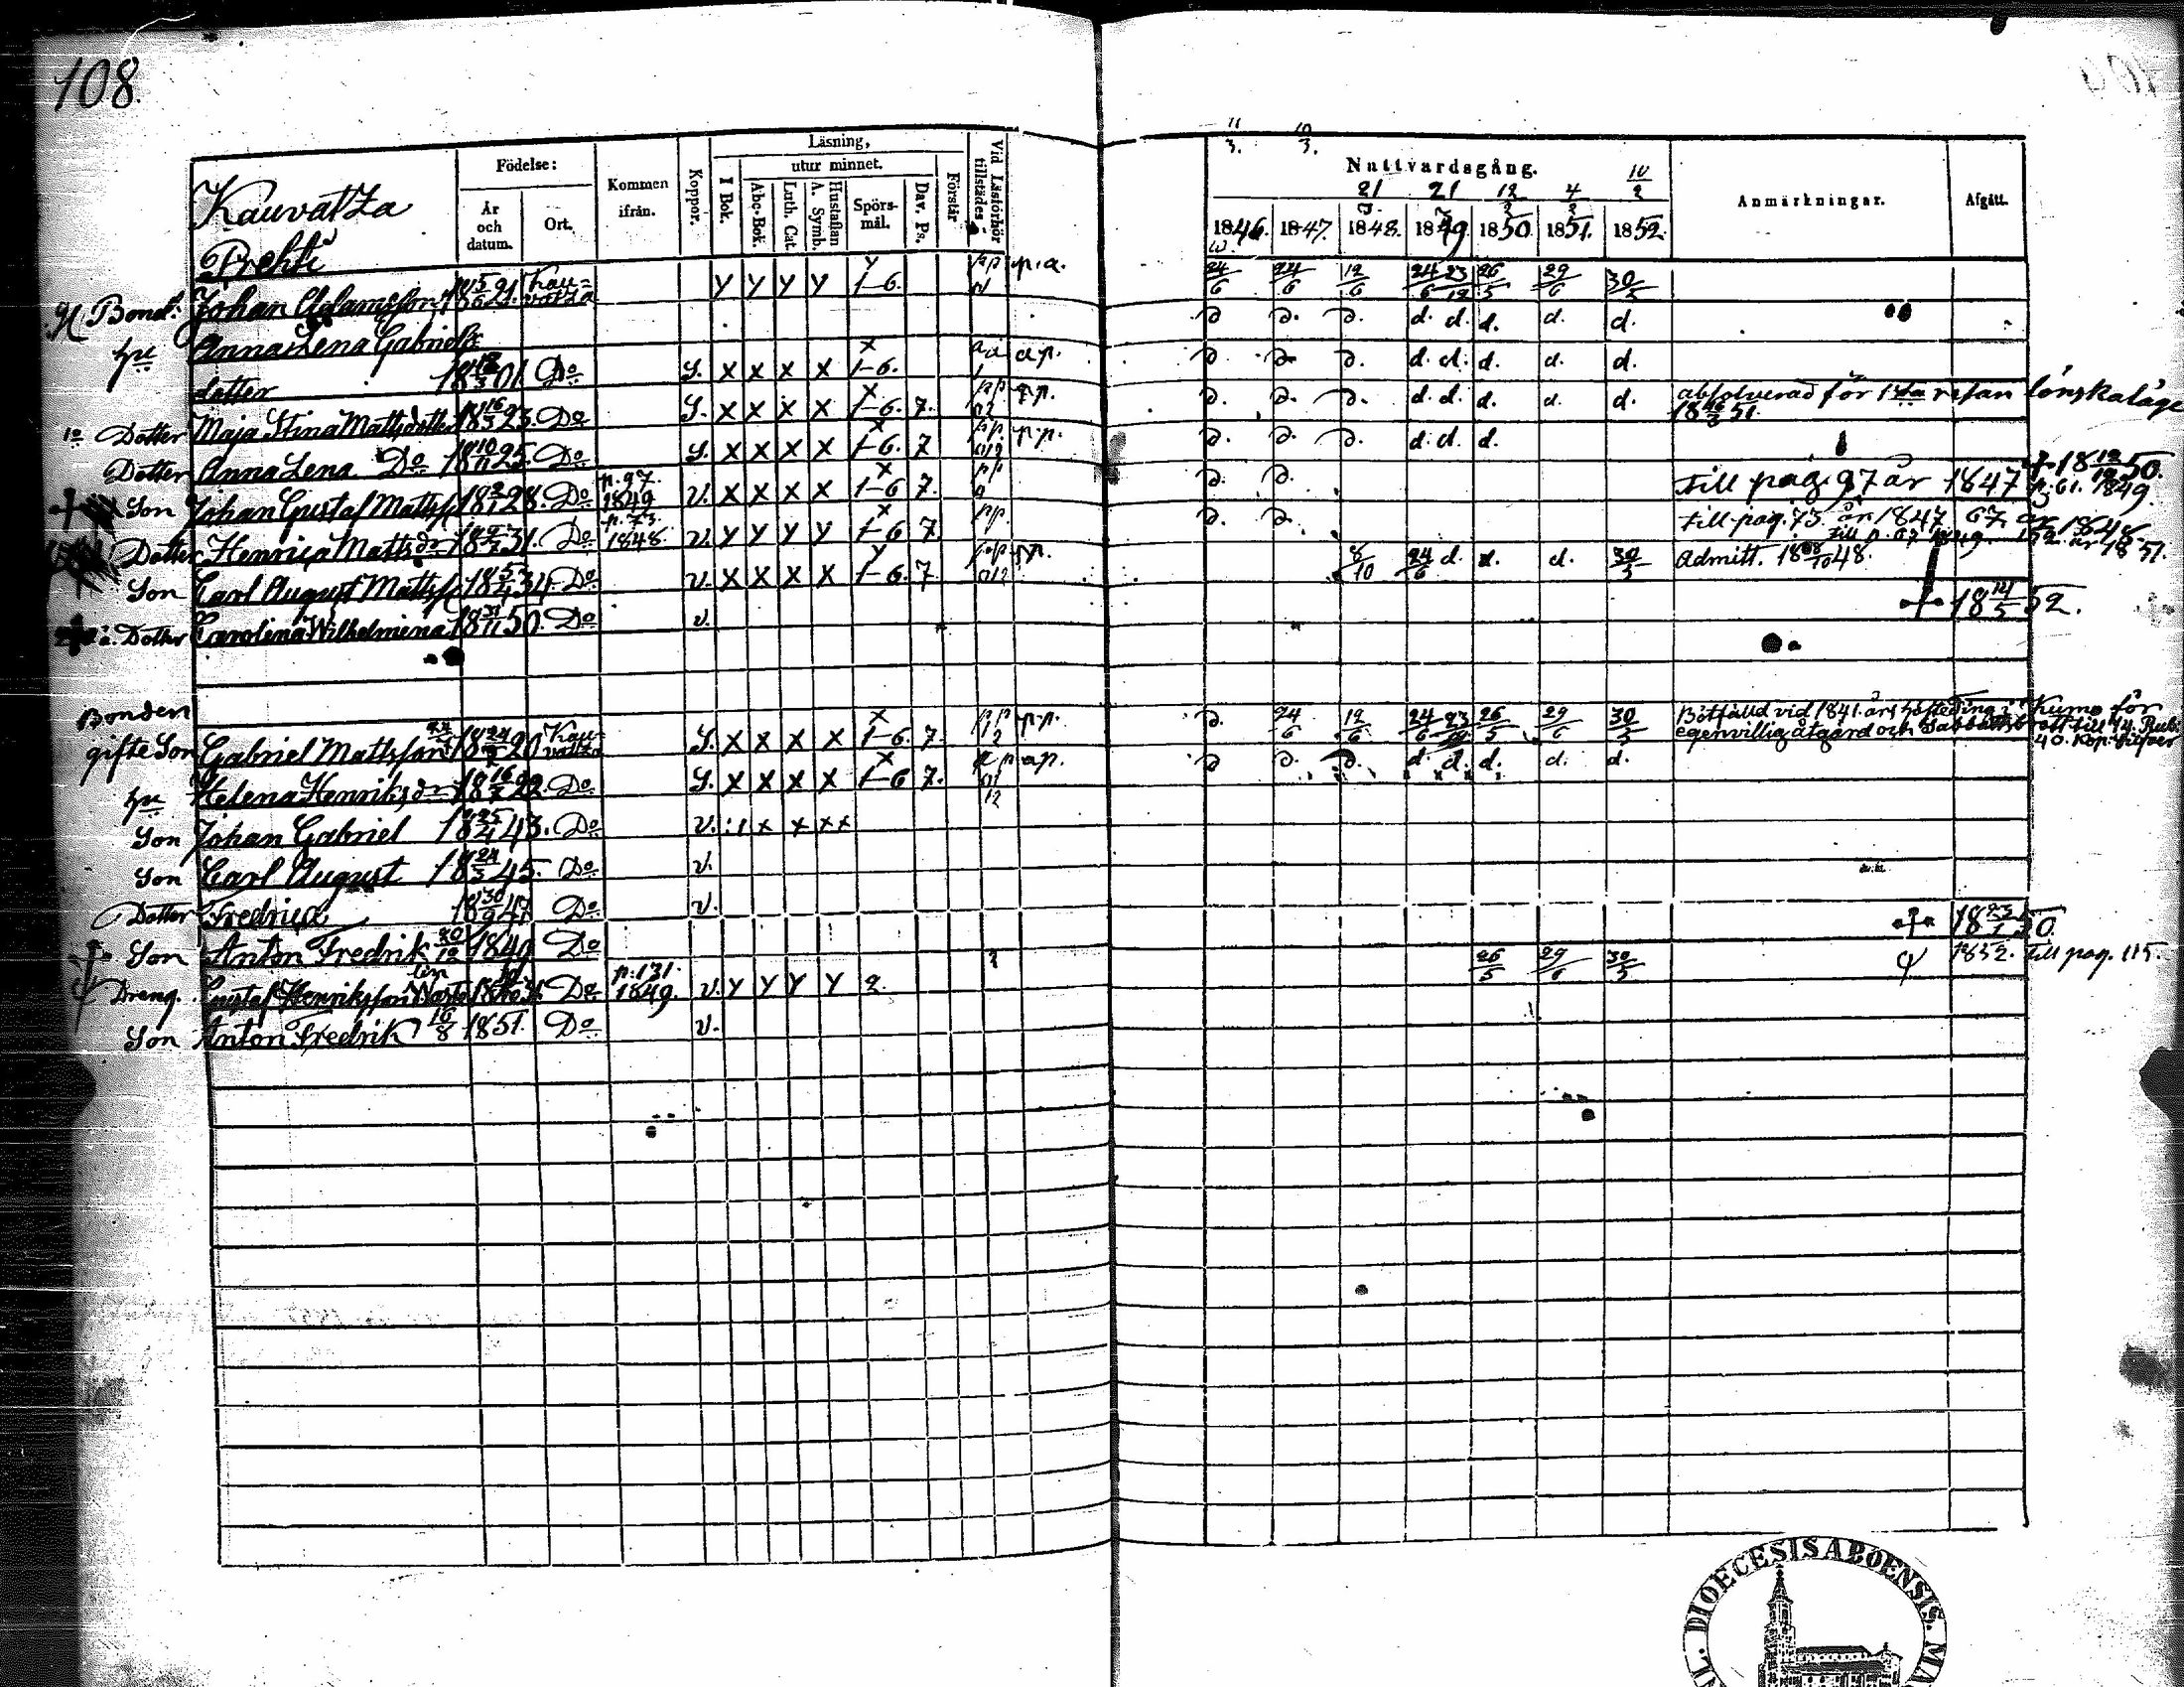 108.
Kauvatza
Prehti
Födelse:
År och datum.
Ort.
Kommen ifrån.
Koppor.
Läsning,
utur minnet.
I Bok.
Abc-Bok.
Luth. Cat.
Hustaflan A. Symb.
Spörs-mål.
Dav. Ps.
Förstår.
Vid Läsförhör tillstädes
11/3. 10/3.
Nattvardsgång.
21/3. 21 12/3 4/3 10/2
1846. 1847. 1848. 1849 1850. 1851. 1852.
Anmärkningar.
Afgått.
Bond. Johan Adamsson Kau=vatza Y Y Y Y 1-6. p.a. 24/6 24/6 12/6 24/6 23/12 26/5 29/6 30/5
d. d. d. d. d. d.
hu Anna Lena Gabriels
dotter 01 Do S. x x x x 1-6. a.p. d. d. d. d. d. d.
Dotter Maja Stina Mattsdotter 18 16/3 23. Do S. x x x x 1-6. 7. p.p. d. d. d. d. absolverad för 1sta resan lönskaläge
Dotter Anna Lena Do 18 10/11 25. Do S. x x x x 1-6. 7 p.p. d. d. d.
Son Johan Gustaf Mattss 28. Do p. 97. 1849 v. x x x x 1-6 7. till pag. 97 år 1847 p. 61. 1849.
Dotter Henrica Mattsdr 31. Do p. 73. 1848. v. Y Y Y Y 1-6 7. till pag. 73. år 1847 67 år 1848.
Son Carl August Mattss 34. Do v. x x x x 1-6. 7 8/10 24/6 d. d. 30/5 Admitt. 48.
Dotter Carolina Wilhelmina 50. Do v. 18 14/5 52.
Bonden
gifte Son Gabriel Mattsson 20 Kauvatza S. x x x x 1-6. 7. p.p. 24/6 12/6 24/6 26/5 29/6 30/5 Bötfälld vid 1841 års hösteting i Kumo för
egenvillig åtgärd och Sabbatsbrott till 14. Rub.
40. Kop. Silfver
hu Helena Henriksdr 18 16/7 22. Do S. x x x x 1-6 7. a.p. d. d. d. d. d.
Son Johan Gabriel 43. Do v. x x x x
Son Carl August 18 24/3 45. Do v.
Dotter Fredrica 18 30/9 47 Do v.
Son Anton Fredrik 1849 Do 50.
Dreng. Gustaf Henriksson Do p. 131. 1849. v. Y Y Y Y 2. 26/5 29/6 30/5 1852. till pag. 115.
Son Anton Fredrik 16/8 1851. Do v.
DIOECESIS ABOENSIS.